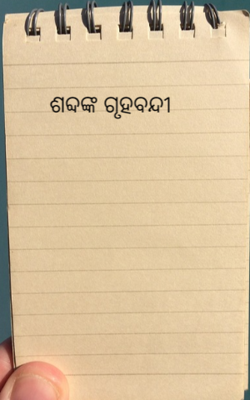 ଶବ୍ଦଙ୍କ ଗୃହବନ୍ଦୀ